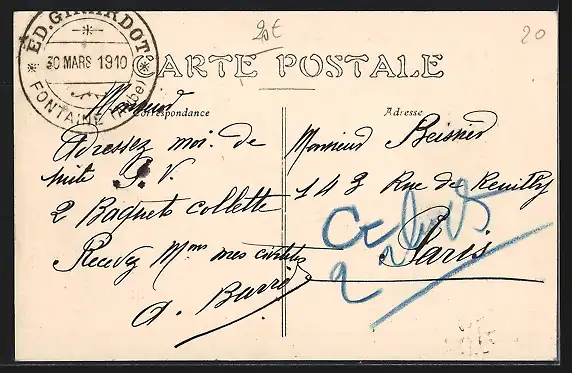 ED. GIRARDOT
30 MARS 1910
FONTAINE (Aube)
20
CARTE POSTALE
Correspondance
Adresse
Monsieur
Adressez moi de
suite
2 Baquets collette
Recevez Mr mes
A.
Monsieur
143 Rue de Reuilly
Paris
2